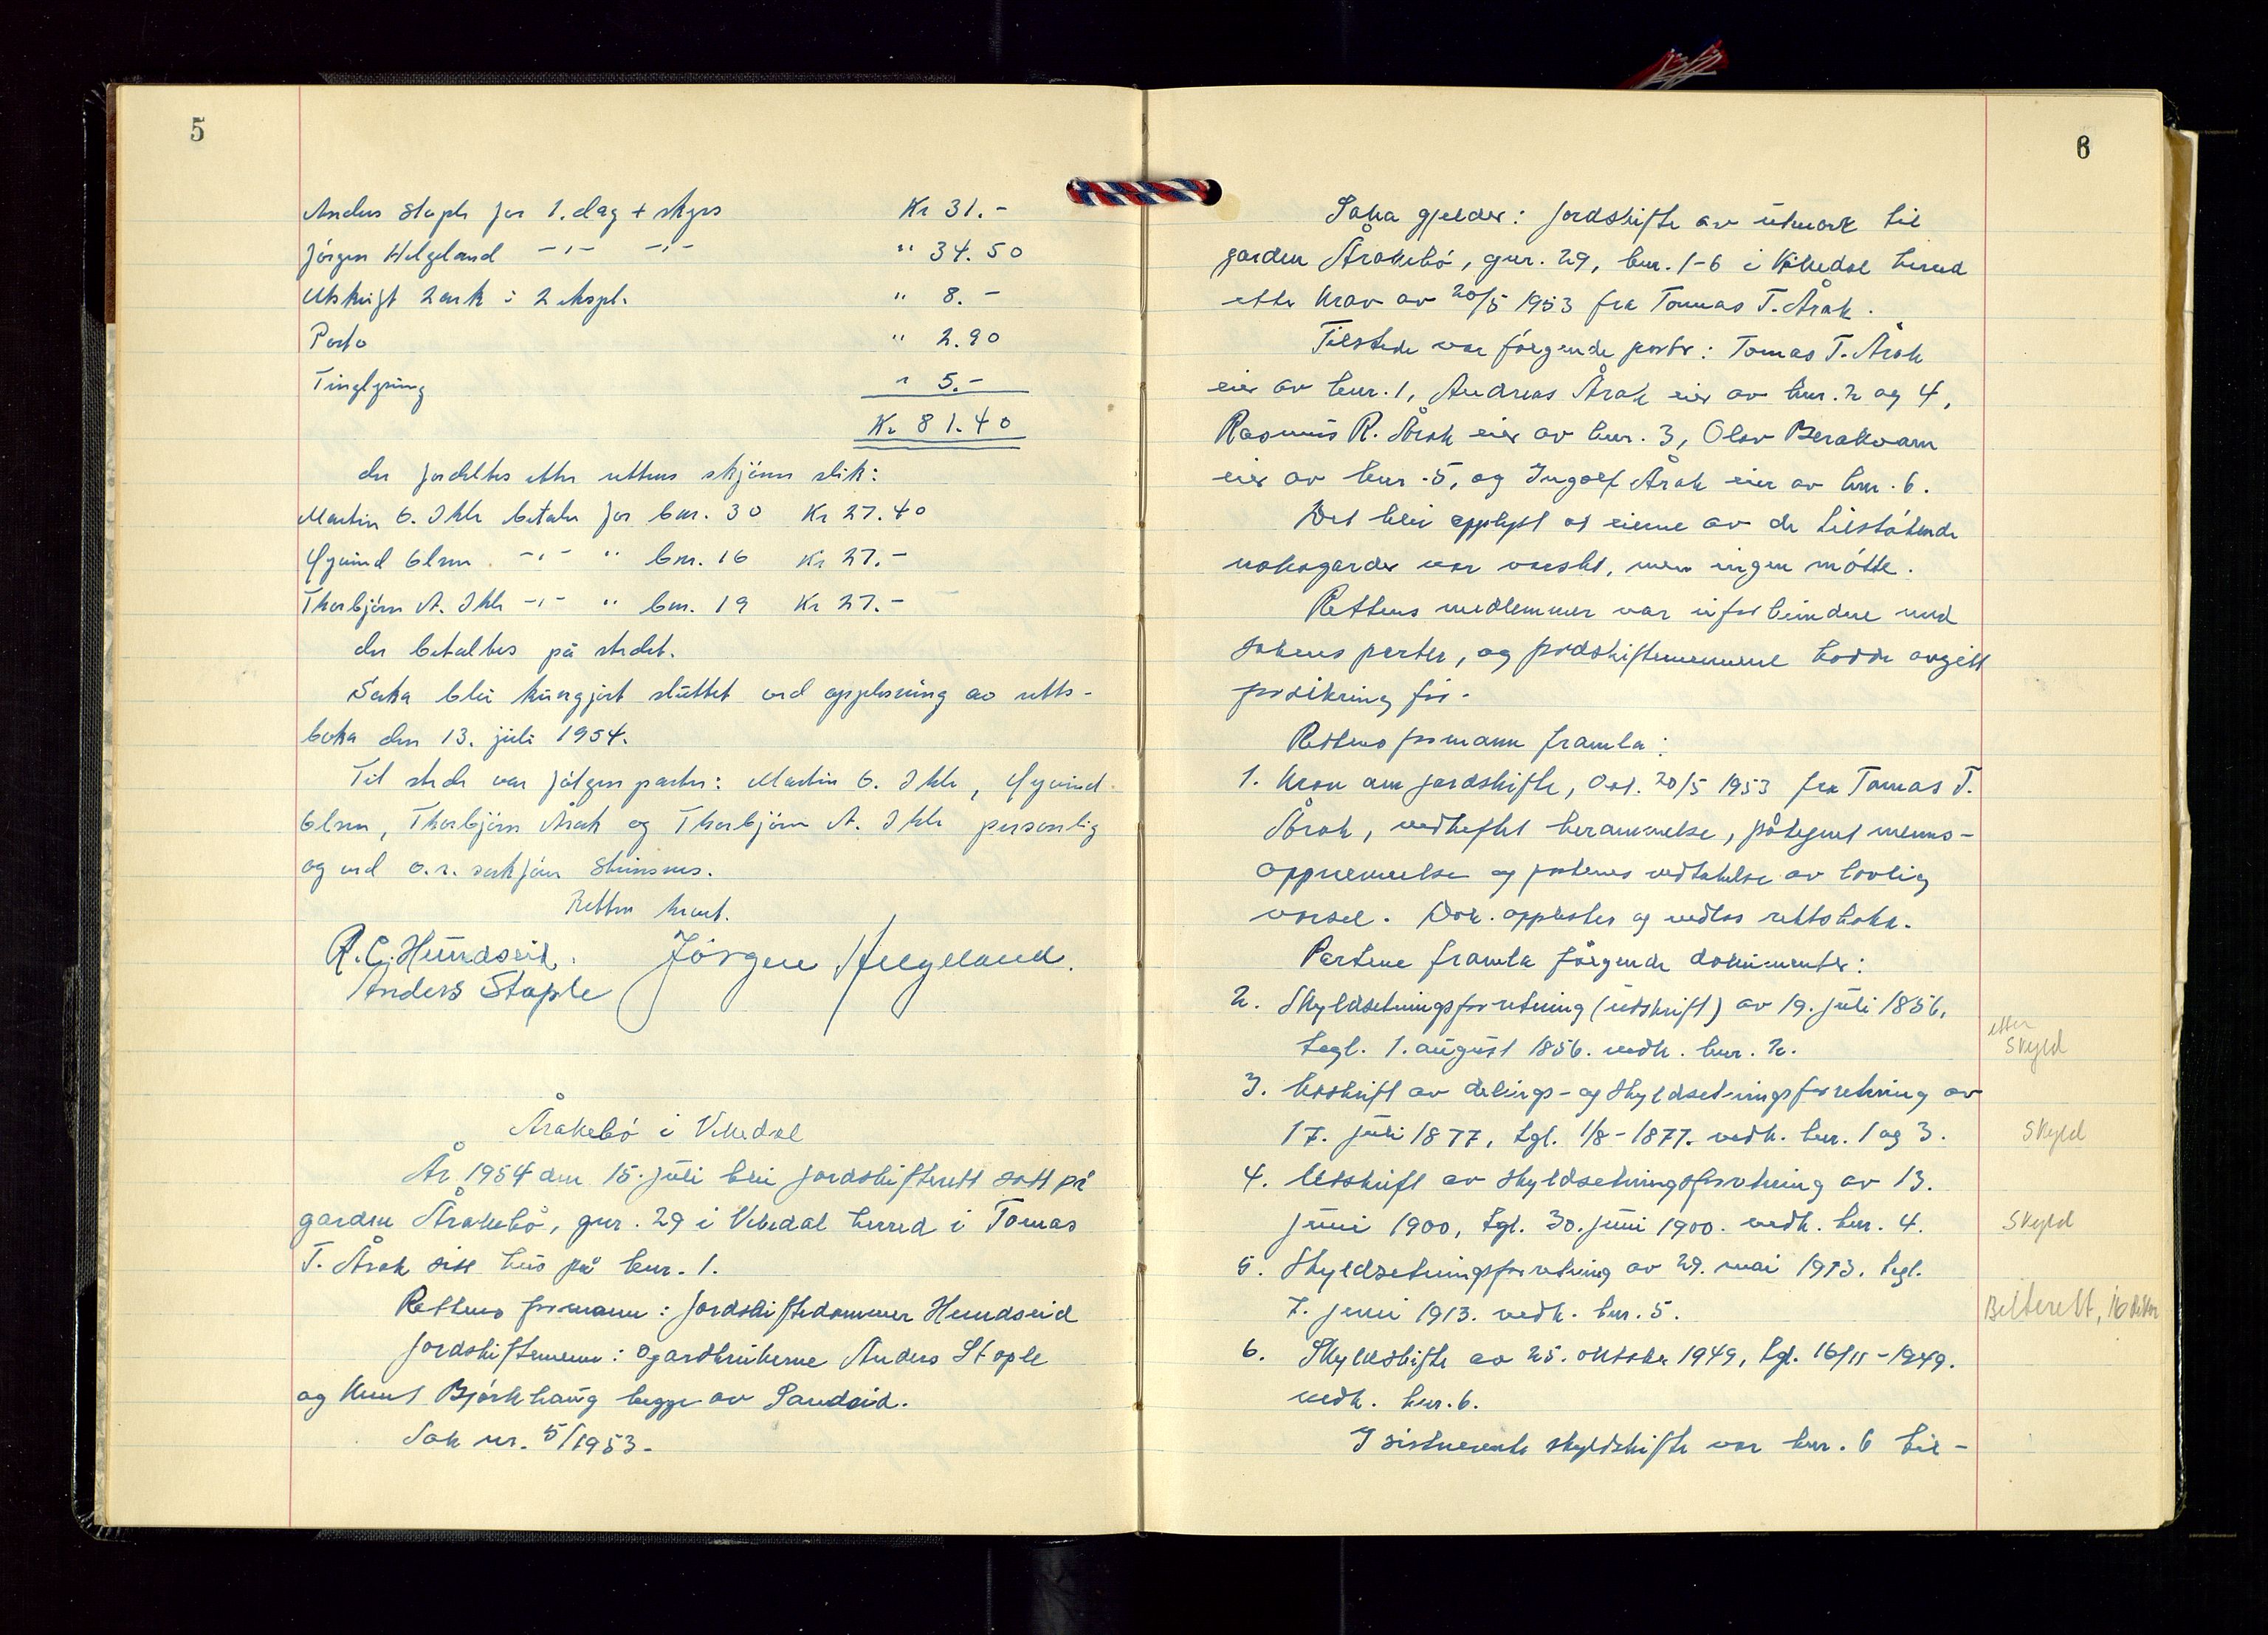 5
Anders Stople for 1. dag + skyss Kr 31.-
Jörgen Helgeland -"- -"- " 34.50
Utskrift 2 ark i 2 ekspl. " 8.-
Porto " 2.90
Tinglysing " 5.-
Kr 81.40
der fordeltes etter rettens skjönn slik:
Martin O. Ilke betaler for bnr. 30 Kr 27.40
Øyvind Olsen -"- " bnr. 16 Kr 27.-
Thorbjörn A. Ilke -"- " bnr. 19 Kr 27.-
der betaltes på stedet.
Saka blei kunngjort sluttet ved opplesning av retts-
boka den 13. juli 1954.
Til stede var følgen parter: Martin O. Ilke, Øyvind
Olsen, Thorbjörn Årak og Thorbjörn A. Ilke personlig
og ved o.r. sakförer Stuvsnes.
Retten hevet.
R. C. Hundseid. Jörgen Helgeland.
Anders Stople
Årakebö i Vikedal
År 1954 den 15. juli blei jordskifterett satt på
garden Årakebö, gnr. 29 i Vikedal herred i Tomas
T. Årak sitt hus på bnr. 1.
Rettens formann: Jordskiftedommer Hundseid
Jordskiftemenn: gardbrukerne Anders Stople
og Knut Björkhaug begge av Sandeid.
Sak nr. 5/1953.
6
Saka gjelder: Jordskifte av utmark til
garden Årakebö, gnr. 29, bnr. 1-6 i Vikedal herred
etter krav av 20/5 1953 fra Tomas T. Årak.
Tilstede var fölgende parter: Tomas T. Årak
eier av bnr. 1, Andreas Årak eier av bnr. 2 og 4,
Rasmus R. Årak eier av bnr. 3, Olav Berakvam
eier av bnr. 5, og Ingolf Årak eier av bnr. 6.
Det blei opplyst at eierne av de tilstötende
nabogarder var varslet, men ingen mötte.
Rettens medlemmer var uforbeindne med
sakens parter, og jordskiftemennene hadde avgitt
forsikring för.
Rettens formann framla:
1. Krav om jordskifte, dat. 20/5 1953 fra Tomas T.
Årak, vedheftet berammelse, påtegnet menns-
oppnemnelse og partenes vedtakelse av lovlig
varsel. Dok. opplestes og vedlas rettsboka.
Partene framla fölgende dokumenter:
2. Skyldsetningsforretning (utskrift) av 19. juli 1856,
tegl. 1. august 1856. vedk. bnr. 2.
etter
Skyld
3. Utskrift av delings- og skyldsetningsforretning av
17. juli 1877, tgl. 1/8-1877. vedk. bnr. 1 og 3.
Skyld
4. Utskrift av skyldsetningsforretning av 13.
juni 1900, tgl. 30. juni 1900. vedk. bnr. 4.
Skyld
5. Skyldsetningsforretning av 29. mai 1913. tegl.
7. juni 1913. vedk. bnr. 5.
Beiterett, 16
6. Skyldskifte av 25. oktober 1949, tgl. 16/11-1949.
vedk. bnr. 6.
I sistnevnte skyldskifte var bnr. 6 til-